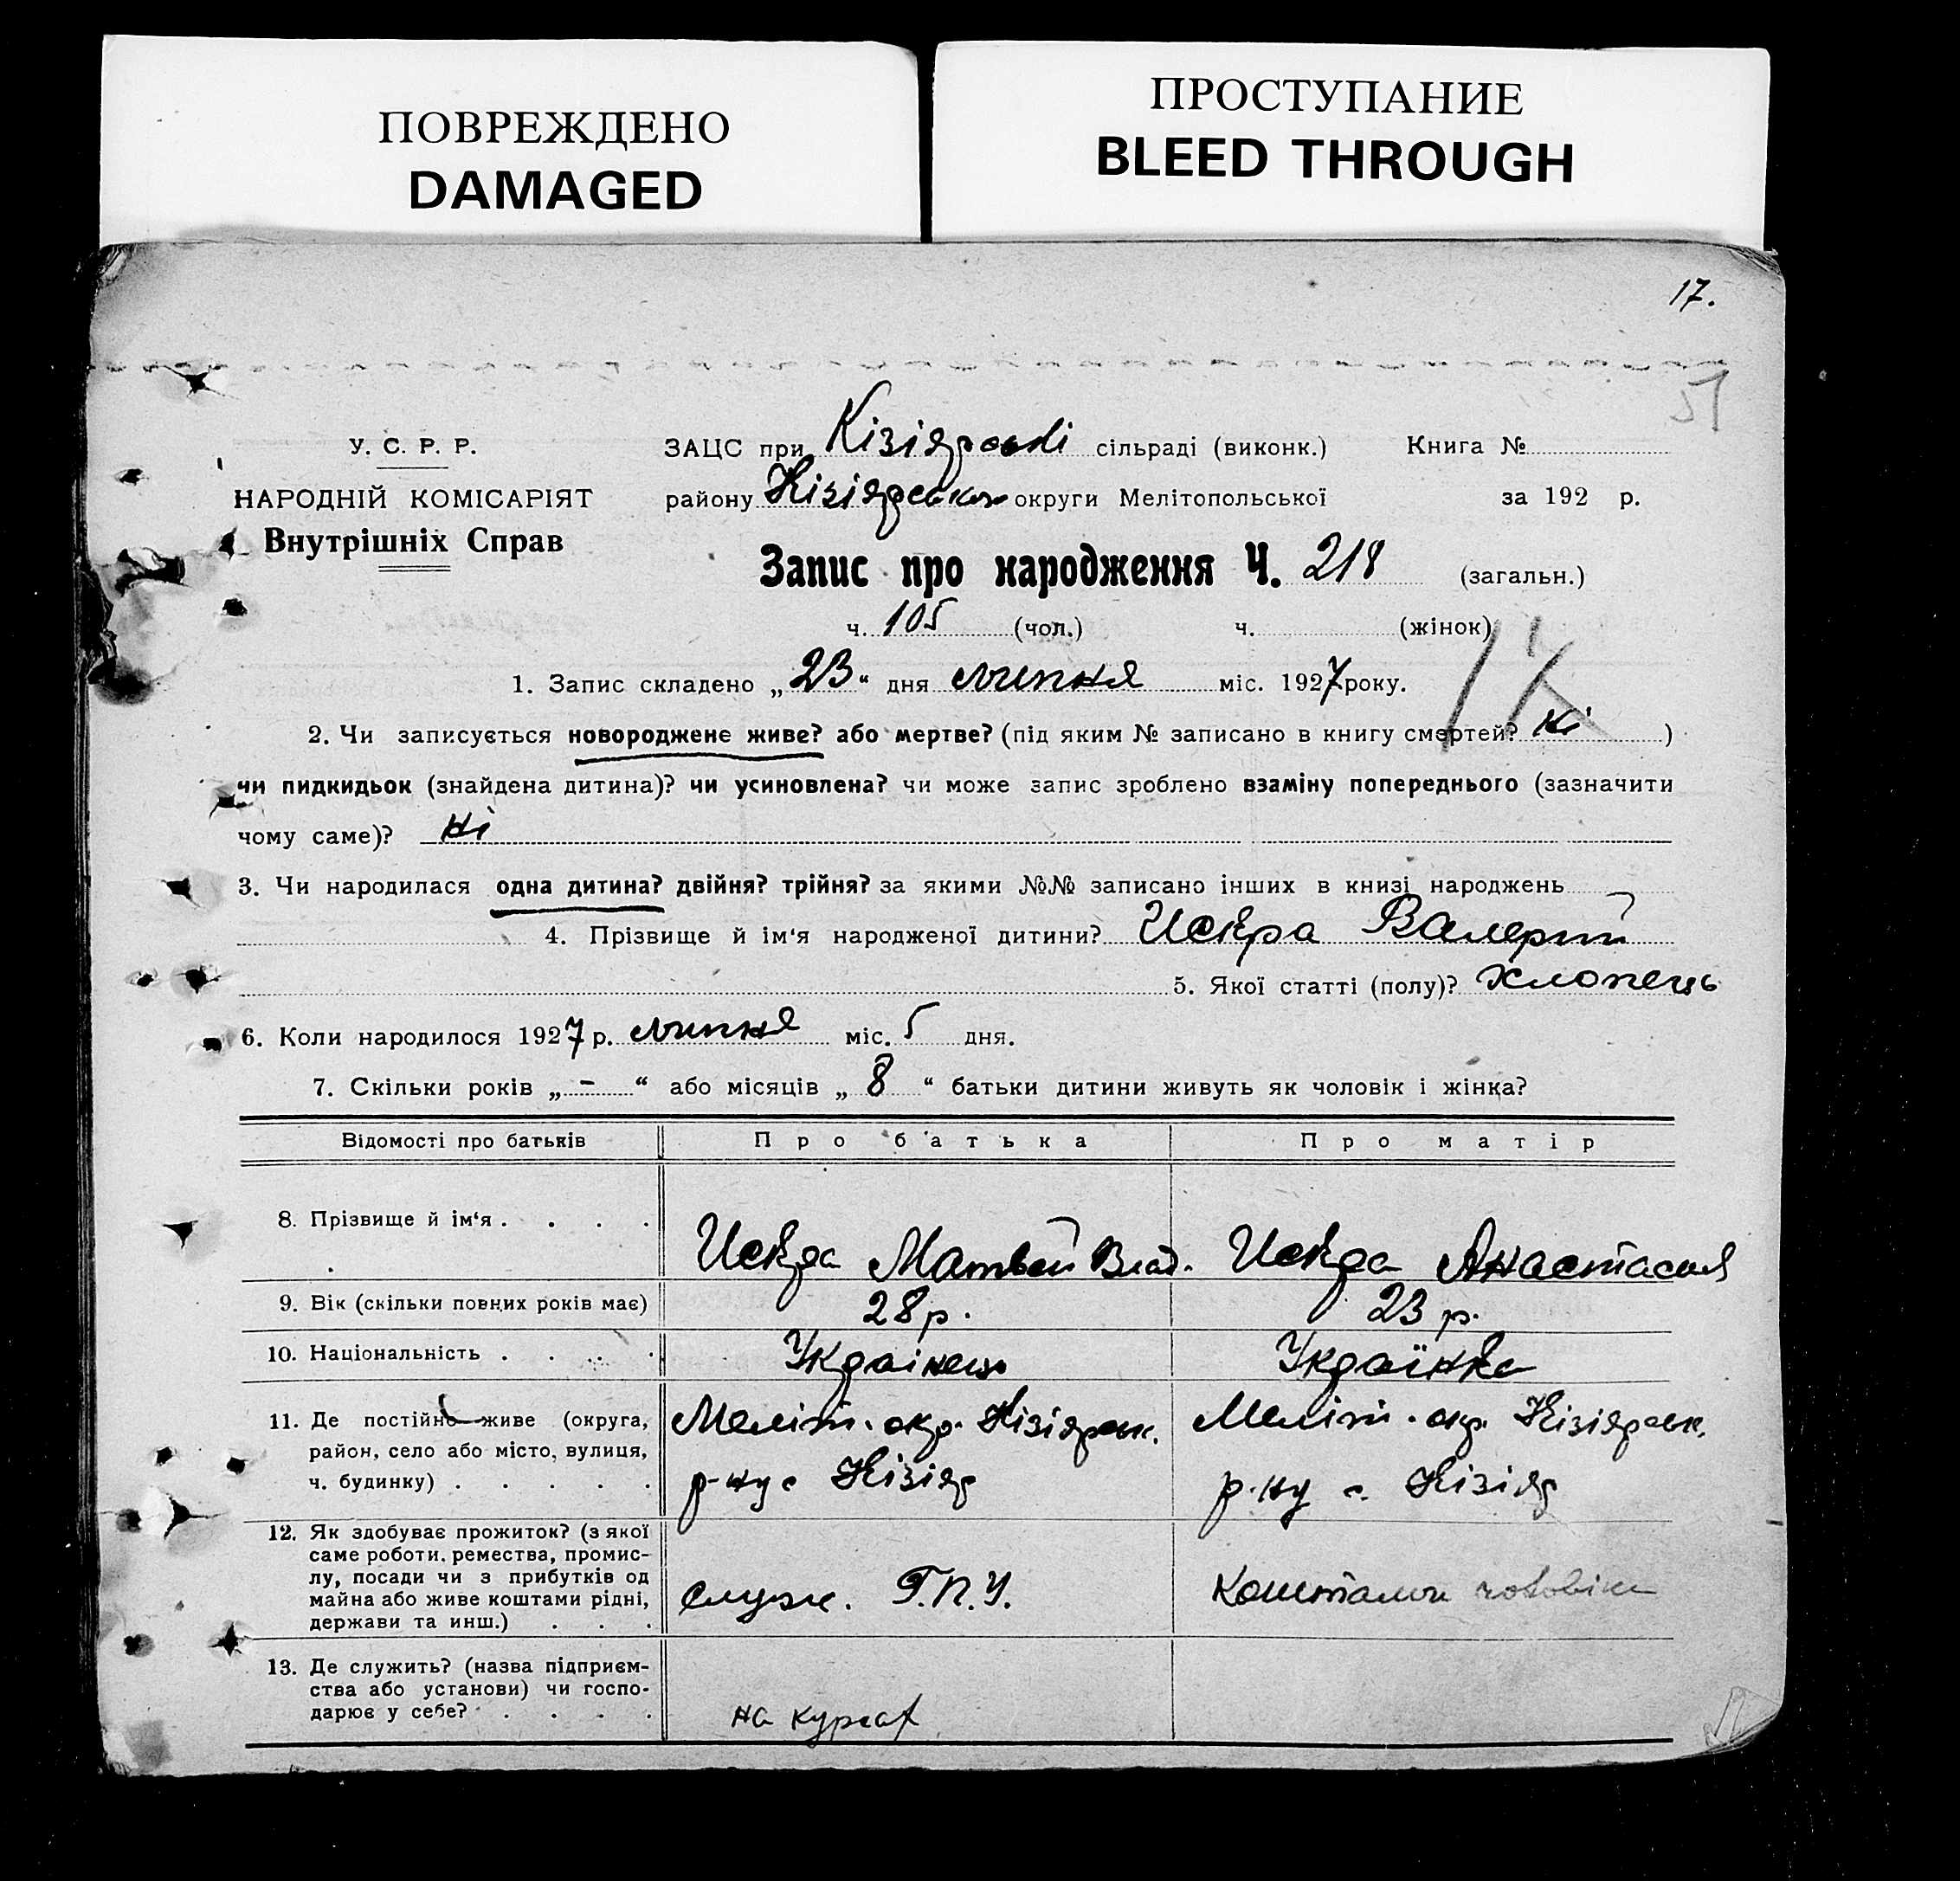 ПОВРЕЖДЕНО
DAMAGED
ПРОСТУПАНИЕ
BLEED THROUGH
17.
У. С. Р. Р.
НАРОДНІЙ КОМІСАРІЯТ
Внутрішніх Справ
ЗАЦС при Кізіярські сільраді (виконк.) Книга №
району Кізіярськ округи Мелітопольської за 192 р.
Запис про народження Ч. 218 (загальн.)
ч. 105 (чол.) ч. (жінок)
1. Запис складено „23“ дня липня міс. 1927 року.
2. Чи записується новороджене живе? або мертве? (під яким № записано в книгу смертей? Ні )
чи пидкидьок (знайдена дитина)? чи усиновлена? чи може запис зроблено взаміну попереднього (зазначити
чому саме)? Ні
3. Чи народилася одна дитина? двійня? трійня? за якими №№ записано інших в книзі народжень
4. Прізвище й ім‘я народженої дитини? Искра Валерий
5. Якої статті (полу)? Хлопець
6. Коли народилося 1927 р. липня міс. 5 дня.
7. Скільки років „ - “ або місяців „ 8 “ батьки дитини живуть як чоловік і жінка?
Відомості про батьків Про батька Про матір
8. Прізвище й ім‘я . . . . Искра Матвей Влад. Искра Анастасия
9. Вік (скільки повних років має) 28 р. 23 р.
10. Національність . . . . Украінець Українка
11. Де постійно живе (округа, Меліт. окр. Кізіярськ. Меліт. окр. Кізіярськ.
район, село або місто, вулиця,
ч. будинку) . . . . . р-ну с Кізіяр р-ну с. Кізіяр
12. Як здобуває прожиток? (з якої
саме роботи, ремества, промис-
лу, посади чи з прибутків од
майна або живе коштами рідні, служ. Г.П.У. Коштами чоловіка
держави та инш.) . . .
13. Де служить? (назва підприєм-
ства або установи) чи госпо-
дарює у себе? . . . . на курсах